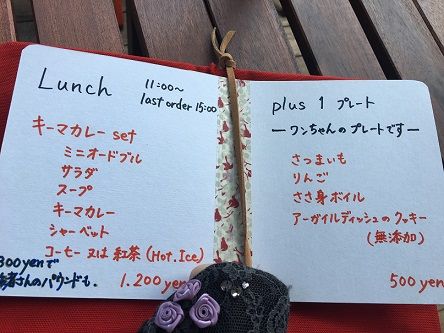 Lunch 11:00~
last order 15:00
キーマカレー set
ミニオードブル
サラダ
スープ
キーマカレー
シャーベット
コーヒー 又は 紅茶 (Hot. Ice)
300yenで
さんのパウンドも.
1.200yen
plus 1 プレート
ーワンちゃんのプレートですー
さつまいも
りんご
ささ身ボイル
アーガイルディッシュのクッキー
(無添加)
500yen